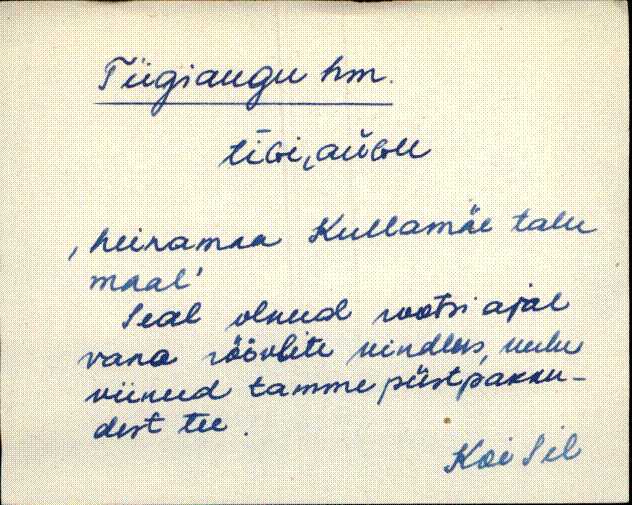 Tiigiaugu hm.
tīGi,aŭGu
'heinamaa Kullamäe talu
maal'
Seal olnud rootsi ajal
vana röövlite kindlus, kuhu
viinud tamme püstpakku-
dest tee.
Koi Sil